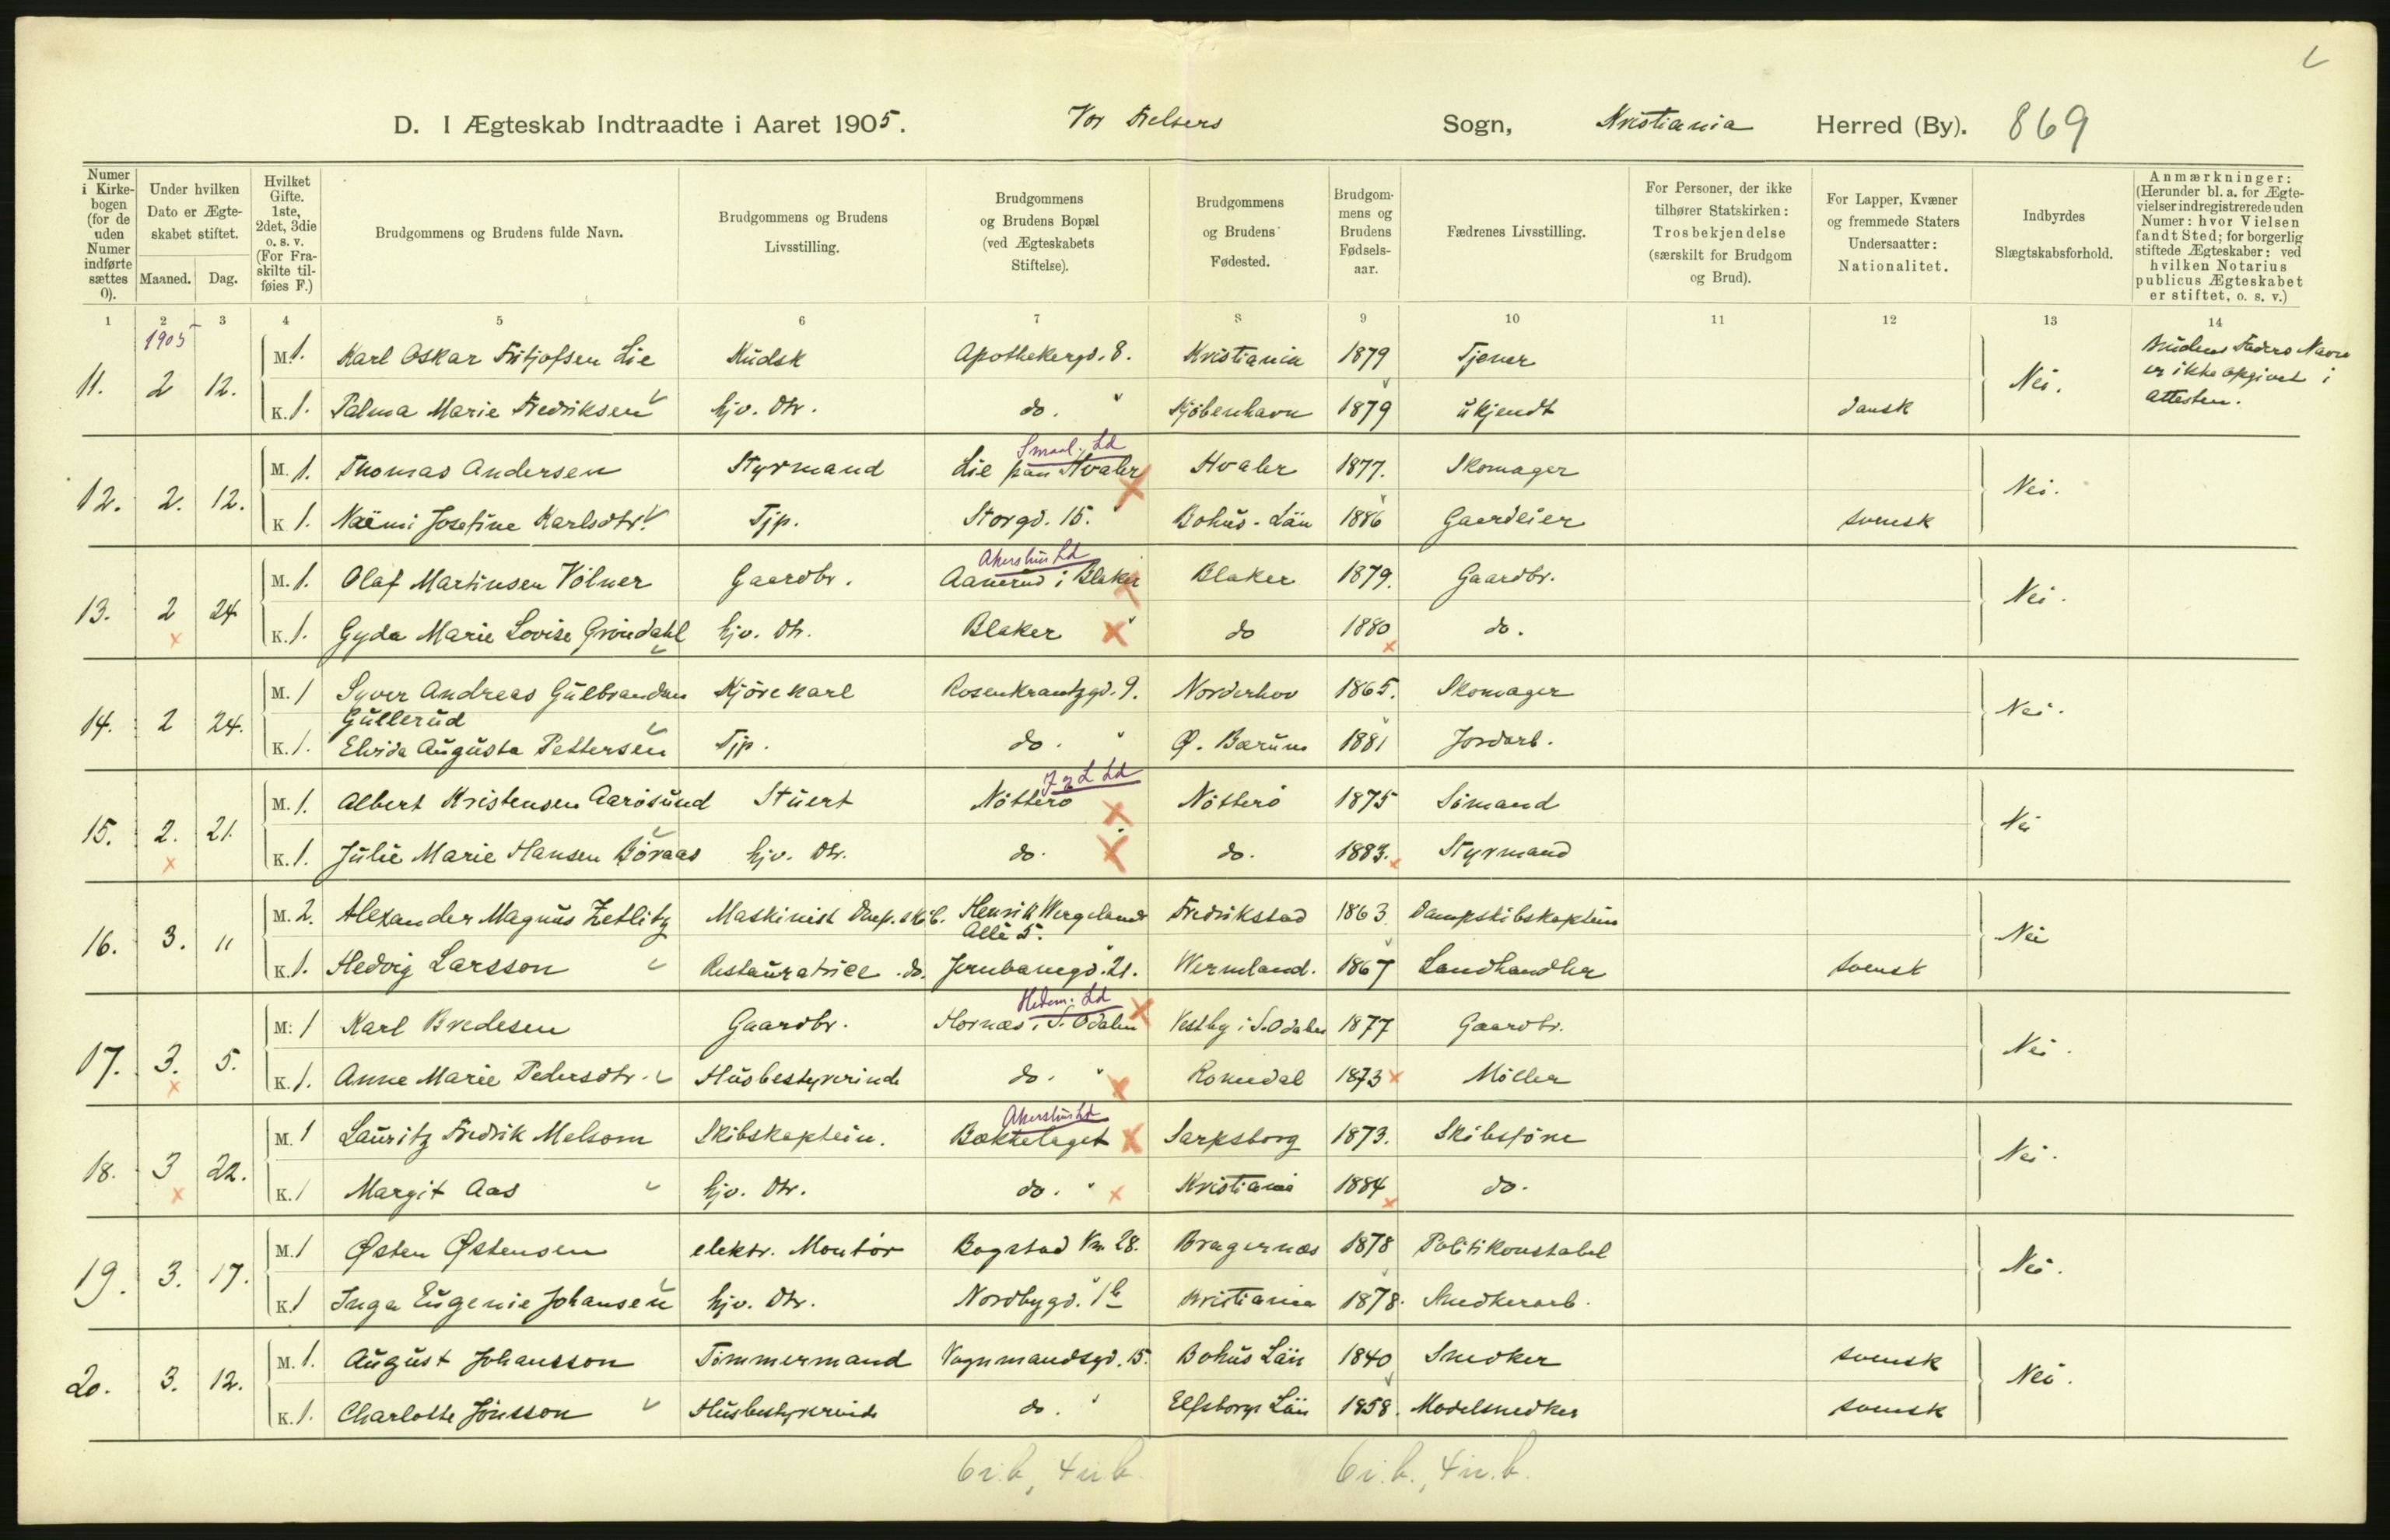 D. I Ægteskab Indtraadte i Aaret 1905. Vor Frelsers Sogn, Kristiania Herred (By). 869
Numer i Kirke-bogen (for de uden Numer indførte sættes 0).
Under hvilken Dato er Ægte-skabet stiftet.
Maaned. Dag.
Hvilket Gifte. 1ste, 2det, 3die o. s. v. (For Fra-skilte til-føies F.)
Brudgommens og Brudens fulde Navn.
Brudgommens og Brudens Livsstilling.
Brudgommens og Brudens Bopæl (ved Ægteskabets Stiftelse).
Brudgommens og Brudens Fødested.
Brudgom-mens og Brudens Fødsels-aar.
Fædrenes Livsstilling.
For Personer, der ikke tilhører Statskirken: Trosbekjendelse (særskilt for Brudgom og Brud).
For Lapper, Kvæner og fremmede Staters Undersaatter: Nationalitet.
Indbyrdes Slægtskabsforhold.
Anmærkninger: (Herunder bl. a. for Ægte-vielser indregistrerede uden Numer: hvor Vielsen fandt Sted; for borgerlig stiftede Ægteskaber: ved hvilken Notarius publicus Ægteskabet er stiftet, o. s. v.)
1 2 3 4 5 6 7 8 9 10 11 12 13 14
1905
11. 2 12. M. 1. Karl Oskar Fritjofsen Lie Kudsk Apothekergd. 8. Kristiania 1879 Tjener Nei. Brudens Faders Navn er ikke opgivet i Attesten.
K. 1. Palma Marie Fredriksen hjv. Dtr. do. " Kjöbenhavn 1879 ukjendt dansk
Smaal. Ld
12. 2. 12. M. 1. Thomas Andersen Styrmand Lie paa Hvaler Hvaler 1877. Skomager Nei.
K 1. Naëmi Josefine Karlsdtr. Tjp. Storgd. 15. Bohus-Län 1886 Gaardeier svensk
Akershus Ld
13. 2 24 M. 1. Olaf Martinsen Völner Gaardbr. Aanerud i Blaker Blaker 1879. Gaardbr. Nei.
K. 1. Gyda Marie Lovise Gröndahl hjv. Dtr. Blaker do 1880 do.
14. 2 24. M. 1 Syver Andreas Gulbrandsen Gullerud Kjörekarl Rosenkrantzgd. 9. Norderhov 1865. Skomager Nei.
K. 1. Elvida Augusta Pettersen Tjp. do. " Ø. Bærum 1881 Jordarb.
J & L Ld
15. 2. 21. M. 1. Albert Kristensen Aarösund Stuert Nötterö Nötterö 1875 Sömand Nei
K. 1. Julie Marie Hansen Böraas hjv. Dtr. do. do. 1883. Styrmand
16. 3. 11 M. 2. Alexander Magnus Zetlitz Maskinist Damp.skib. Henrik Wergelands Allé 5. Fredrikstad 1863 Dampskibskaptein Nei
K. 1. Hedvig Larsson Restauratrice do. Jernbanegd. 21. Wermland. 1867 Landhandler svensk
Hedem. Ld
17. 3. 5. M. 1 Karl Bredesen Gaardbr. Hornæs i S. Odalen Vestby i S. Odalen 1877 Gaardbr. Nei.
K. 1. Anne Marie Pedersdtr. Husbestyrerinde do. " Romedal 1873 Möller
Akershus Ld
18. 3 22. M. 1 Lauritz Fredrik Melsom Skibskaptein. Bækkelaget Sarpsborg 1873. Skibsförer Nei.
K. 1 Margit Aas hjv. Dtr. do. " Kristiania 1884 do.
19. 3. 17. M. 1 Østen Østensen elektr. Montör Bogstad Vn. 28. Bragernæs 1878 Politikonstabel Nei.
K. 1 Inga Eugenie Johansen hjv. Dtr. Nordbygd. 1b Kristiania 1878. Snedkerarb.
20. 3. 12. M. 1. August Johansson Tömmermand Vognmandsgd. 15. Bohus Län 1840 Snedker svensk Nei.
K. 1. Charlotte Jönsson Husbestyrerinde do. " Elfsborgs Län 1858. Modelsnedker svensk
6 i.b., 4 u.b. 6 i.b., 4 u.b.